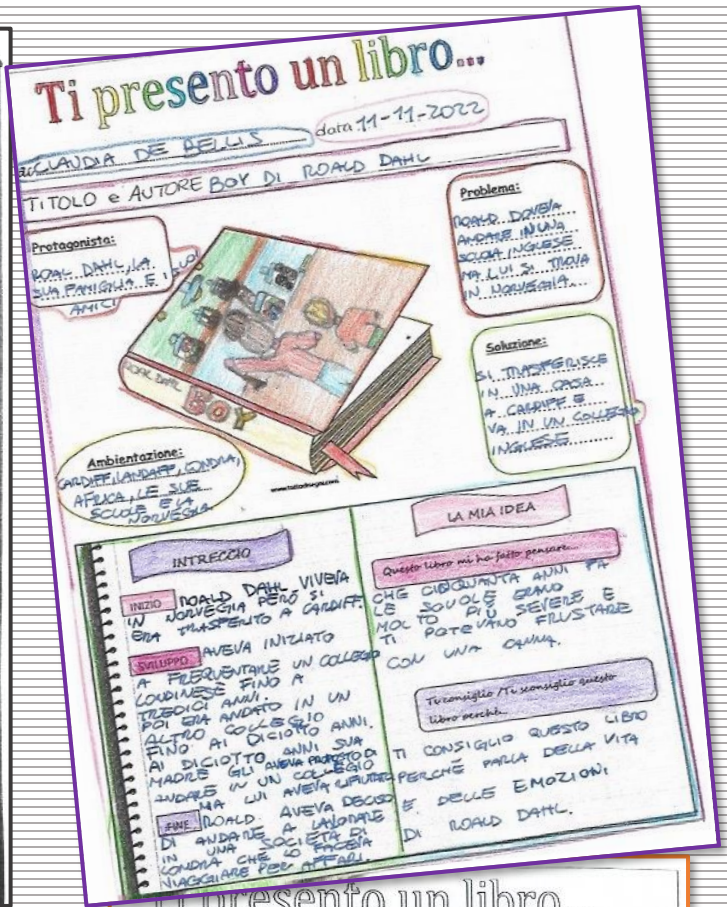 Ti presento un libro...
di CLAUDIA DE BELLIS data 11-11-2022
TITOLO e AUTORE BOY DI ROALD DAHL
Protagonista:
ROAL DAHL, LA
SUA FAMIGLIA E I SUOI
AMICI
Problema:
ROALD DOVEVA
ANDARE IN UNA
SCUOLA INGLESE
MA LUI SI TROVA
IN NORVEGIA
ROAL DAHL
BOY
Soluzione:
SI TRASFERISCE
IN UNA CASA
A CARDIFF E
VA IN UN COLLEGIO
INGLESE
Ambientazione:
CARDIFF, LANDAFF, LONDRA,
AFRICA, LE SUE
SCUOLE E LA
NORVEGIA
www.tuttodisegni.com
INTRECCIO
INIZIO ROALD DAHL VIVEVA
IN NORVEGIA PERÒ SI
ERA TRASFERITO A CARDIFF.
SVILUPPO AVEVA INIZIATO
A FREQUENTARE UN COLLEGIO
LONDINESE FINO A
TREDICI ANNI.
POI ERA ANDATO IN UN
ALTRO COLLEGIO
FINO AI DICIOTTO ANNI.
AI DICIOTTO ANNI SUA
MADRE GLI AVEVA PROPOSTO DI
ANDARE IN UN COLLEGIO
MA LUI AVEVA RIFIUTATO
FINE ROALD AVEVA DECISO
DI ANDARE A LAVORARE
IN UNA SOCIETÀ DI
LONDRA CHE LO FACEVA
VIAGGIARE PER AFFARI.
LA MIA IDEA
Questo libro mi ha fatto pensare...
CHE CINQUANTA ANNI FA
LE SCUOLE ERANO
MOLTO PIÙ SEVERE E
TI POTEVANO FRUSTARE
CON UNA CANNA.
Ti consiglio /Ti sconsiglio questo
libro perché...
TI CONSIGLIO QUESTO LIBRO
PERCHÉ PARLA DELLA VITA
E DELLE EMOZIONI
DI ROALD DAHL.
Ti presento un libro